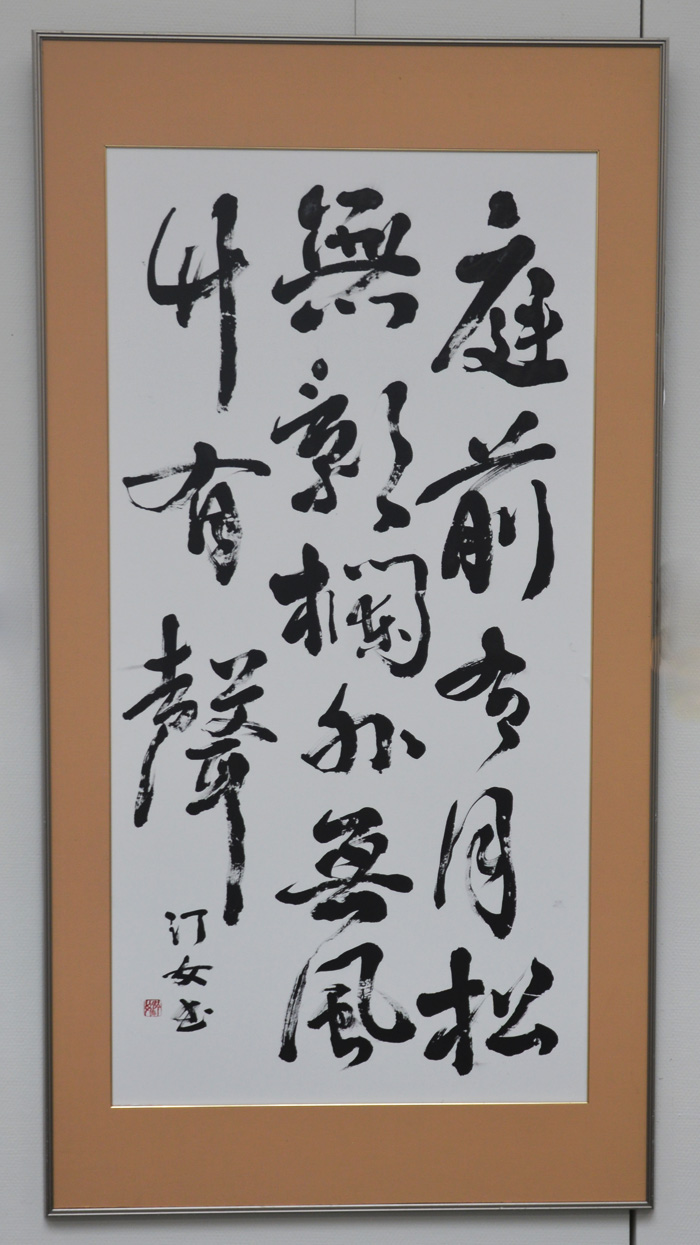 庭前有月松
無影欄外無風
竹有聲
汀女书